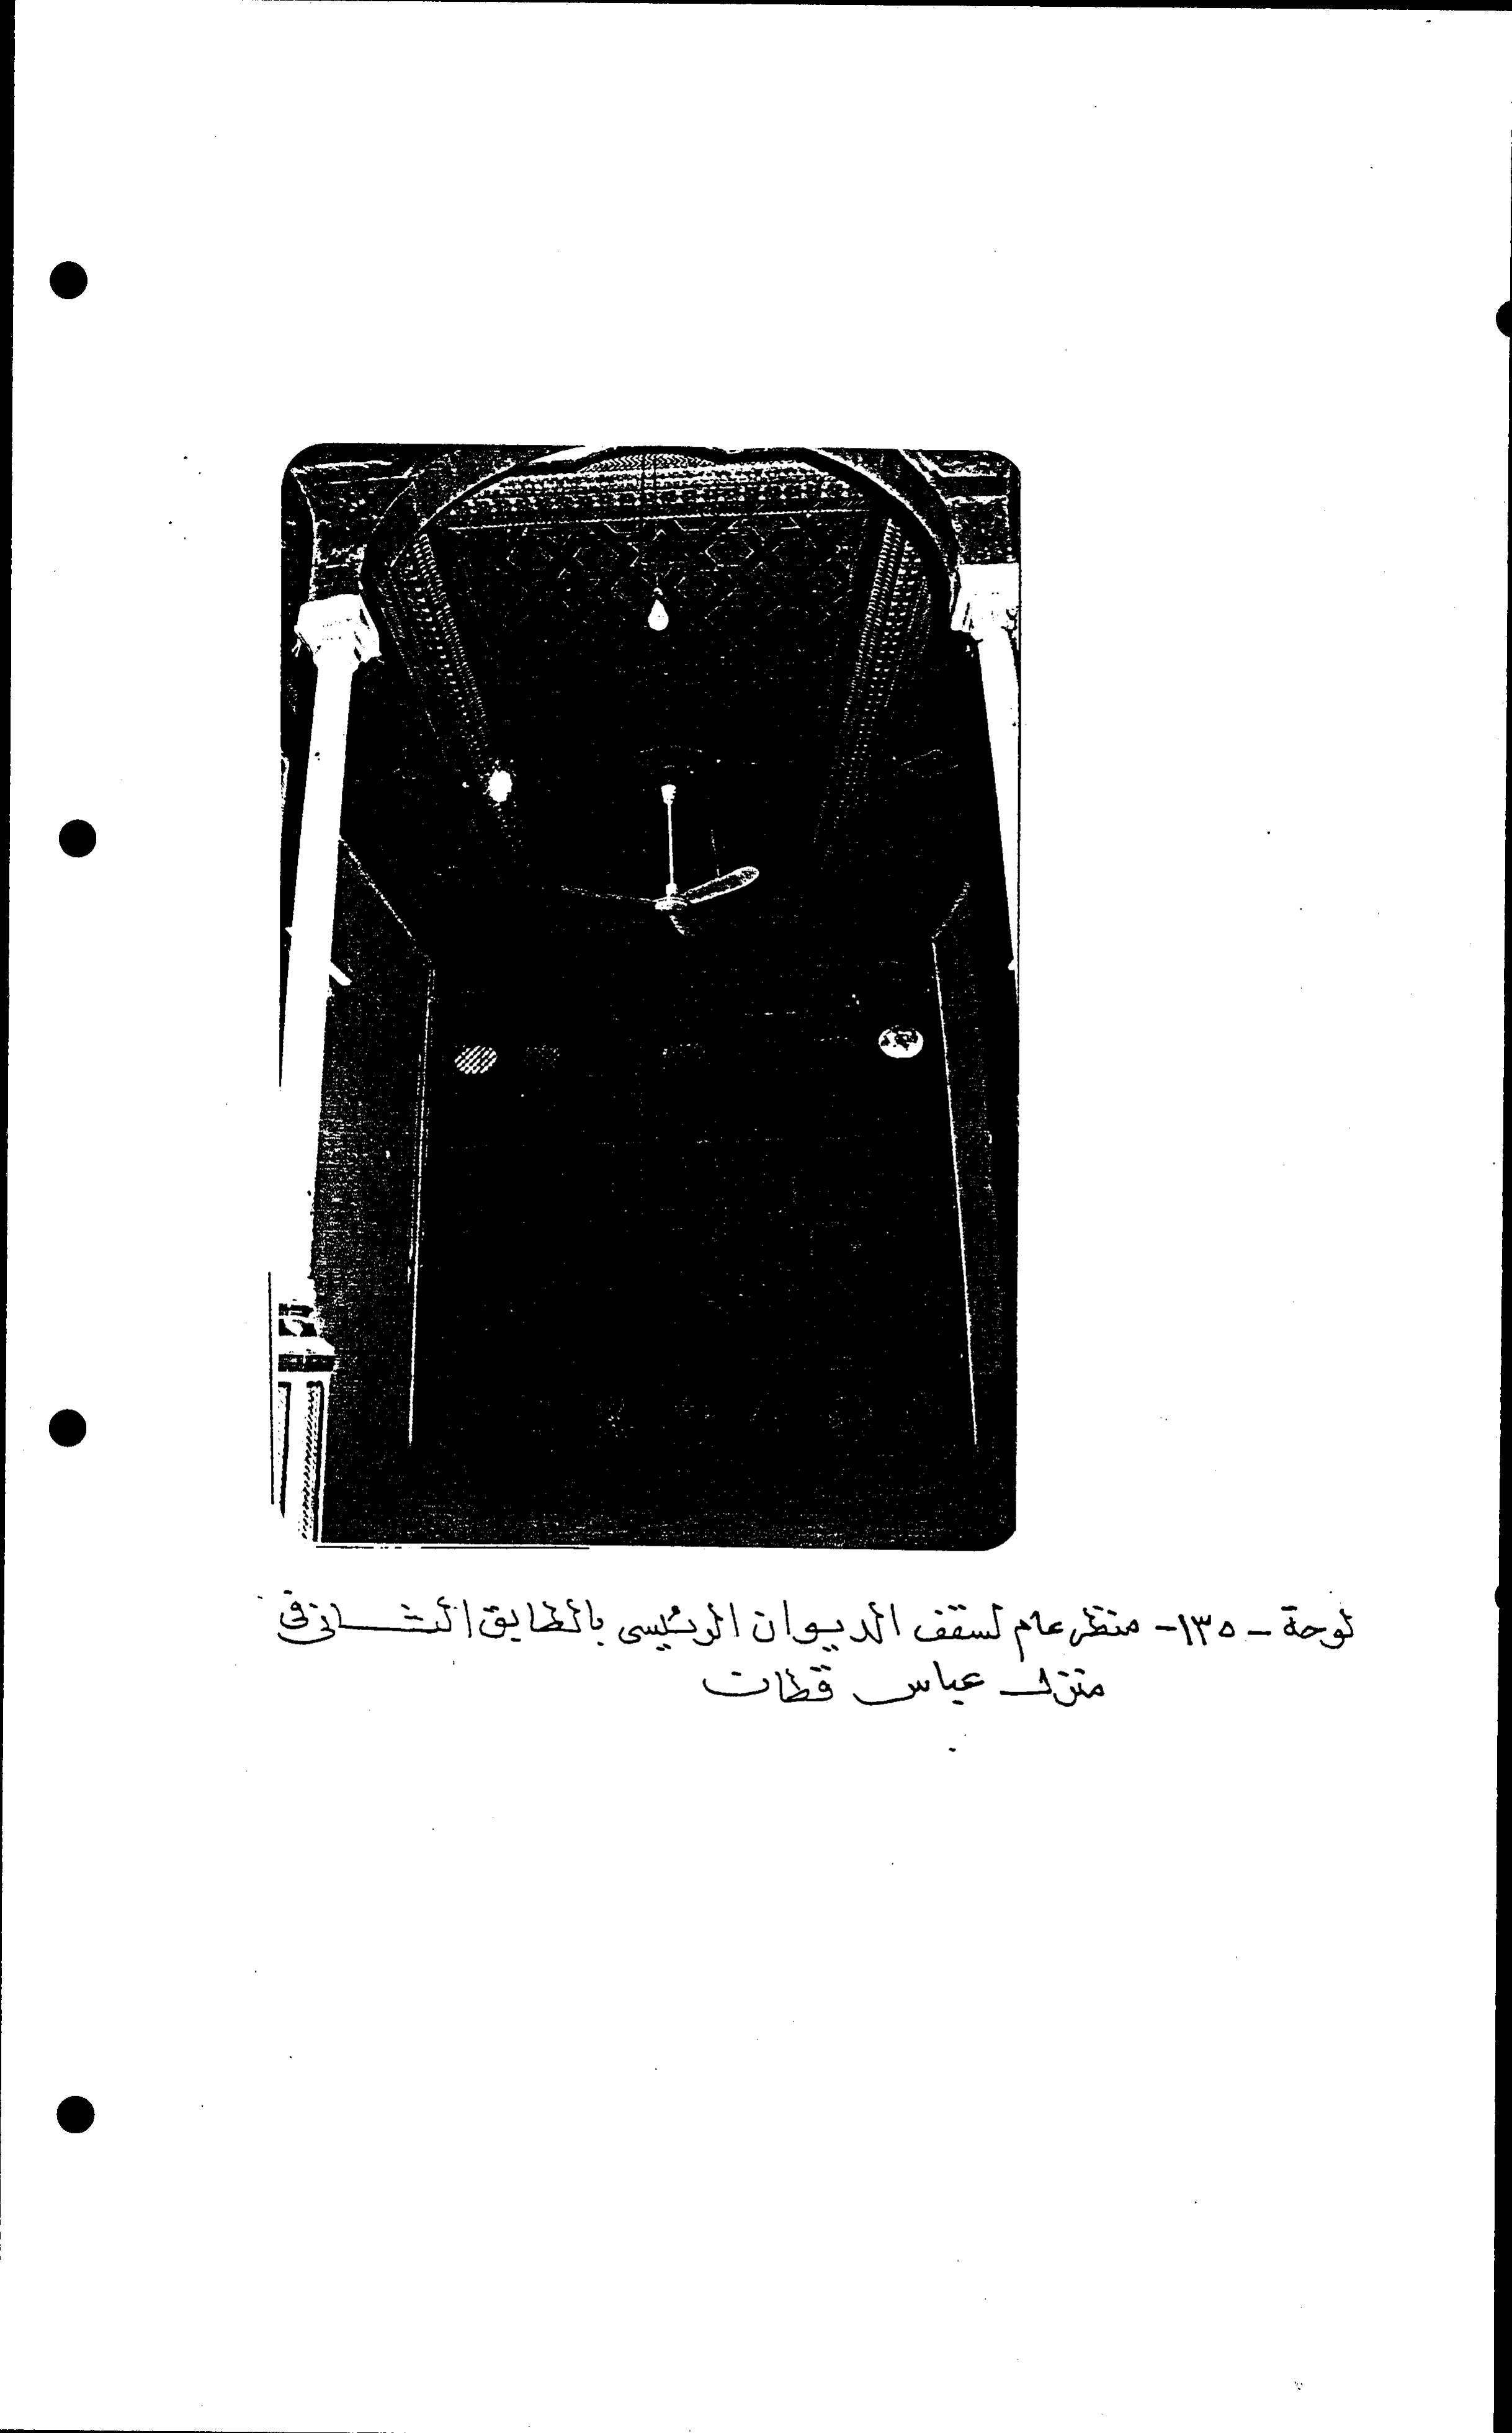 لوحة - ١٣٥- منظر عام لسقف الديوان الرئيسى بالطابق الثانى فى
منزل عباس قطان